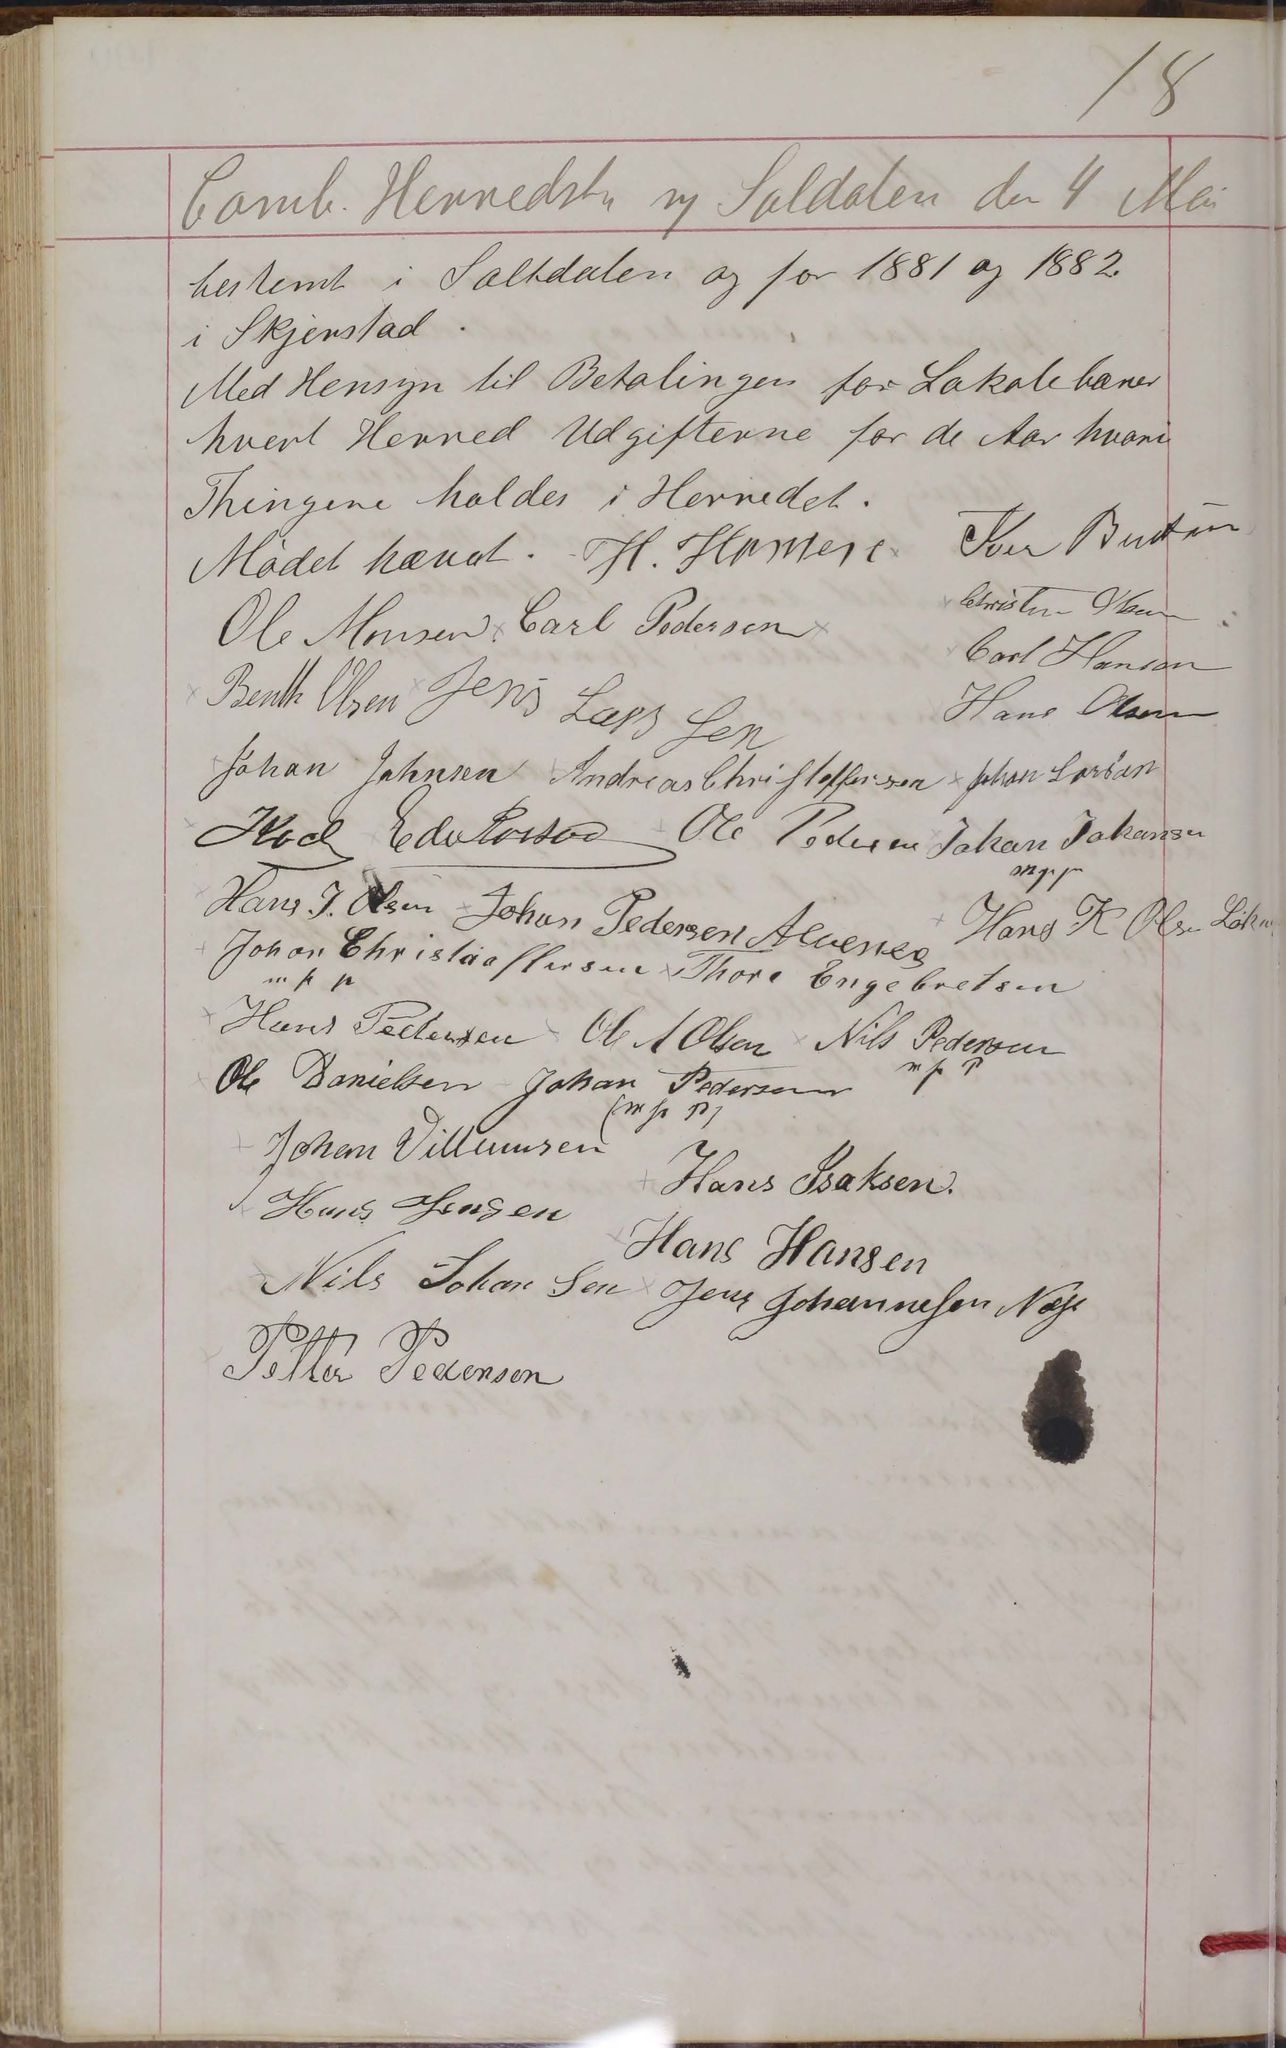 18
Comb. Herredsst. i Saldalen den 4 Mai
bestemt i Saltdalen og for 1881 og 1882.
i Skjerstad.
Med Hensyn til Betalingen for Lokale bærer
hvert Herred Udgifterne for de Aar hvori
Thingene holdes i Herredet.
Mødet hævet. H.
Ole Monsen Carl Pedersen Christen Olsen
Carl Hansen
Bent Olsen Jens Lars Sen Hans Olsen
Johan Johnsen Andreas Christoffersen Johan
Koch Edv Ole Pedersen Johan Johansen
mpp
Hans J. Olsen Johan Pedersen Alvenes Hans K Olsen
Johan Christiaoffersen Thore Engebretsen
m p p
Hans Pedersen Ole A Olsen Nils Pedersen
m p p
Ole Danielsen Johan Pedersen
(m p p)
Johan Villumsen Hans Isaksen.
Hans Jensen
Hans Hansen
Nils Johan Sen Jens Johannesen Næs
Petter Pedersen